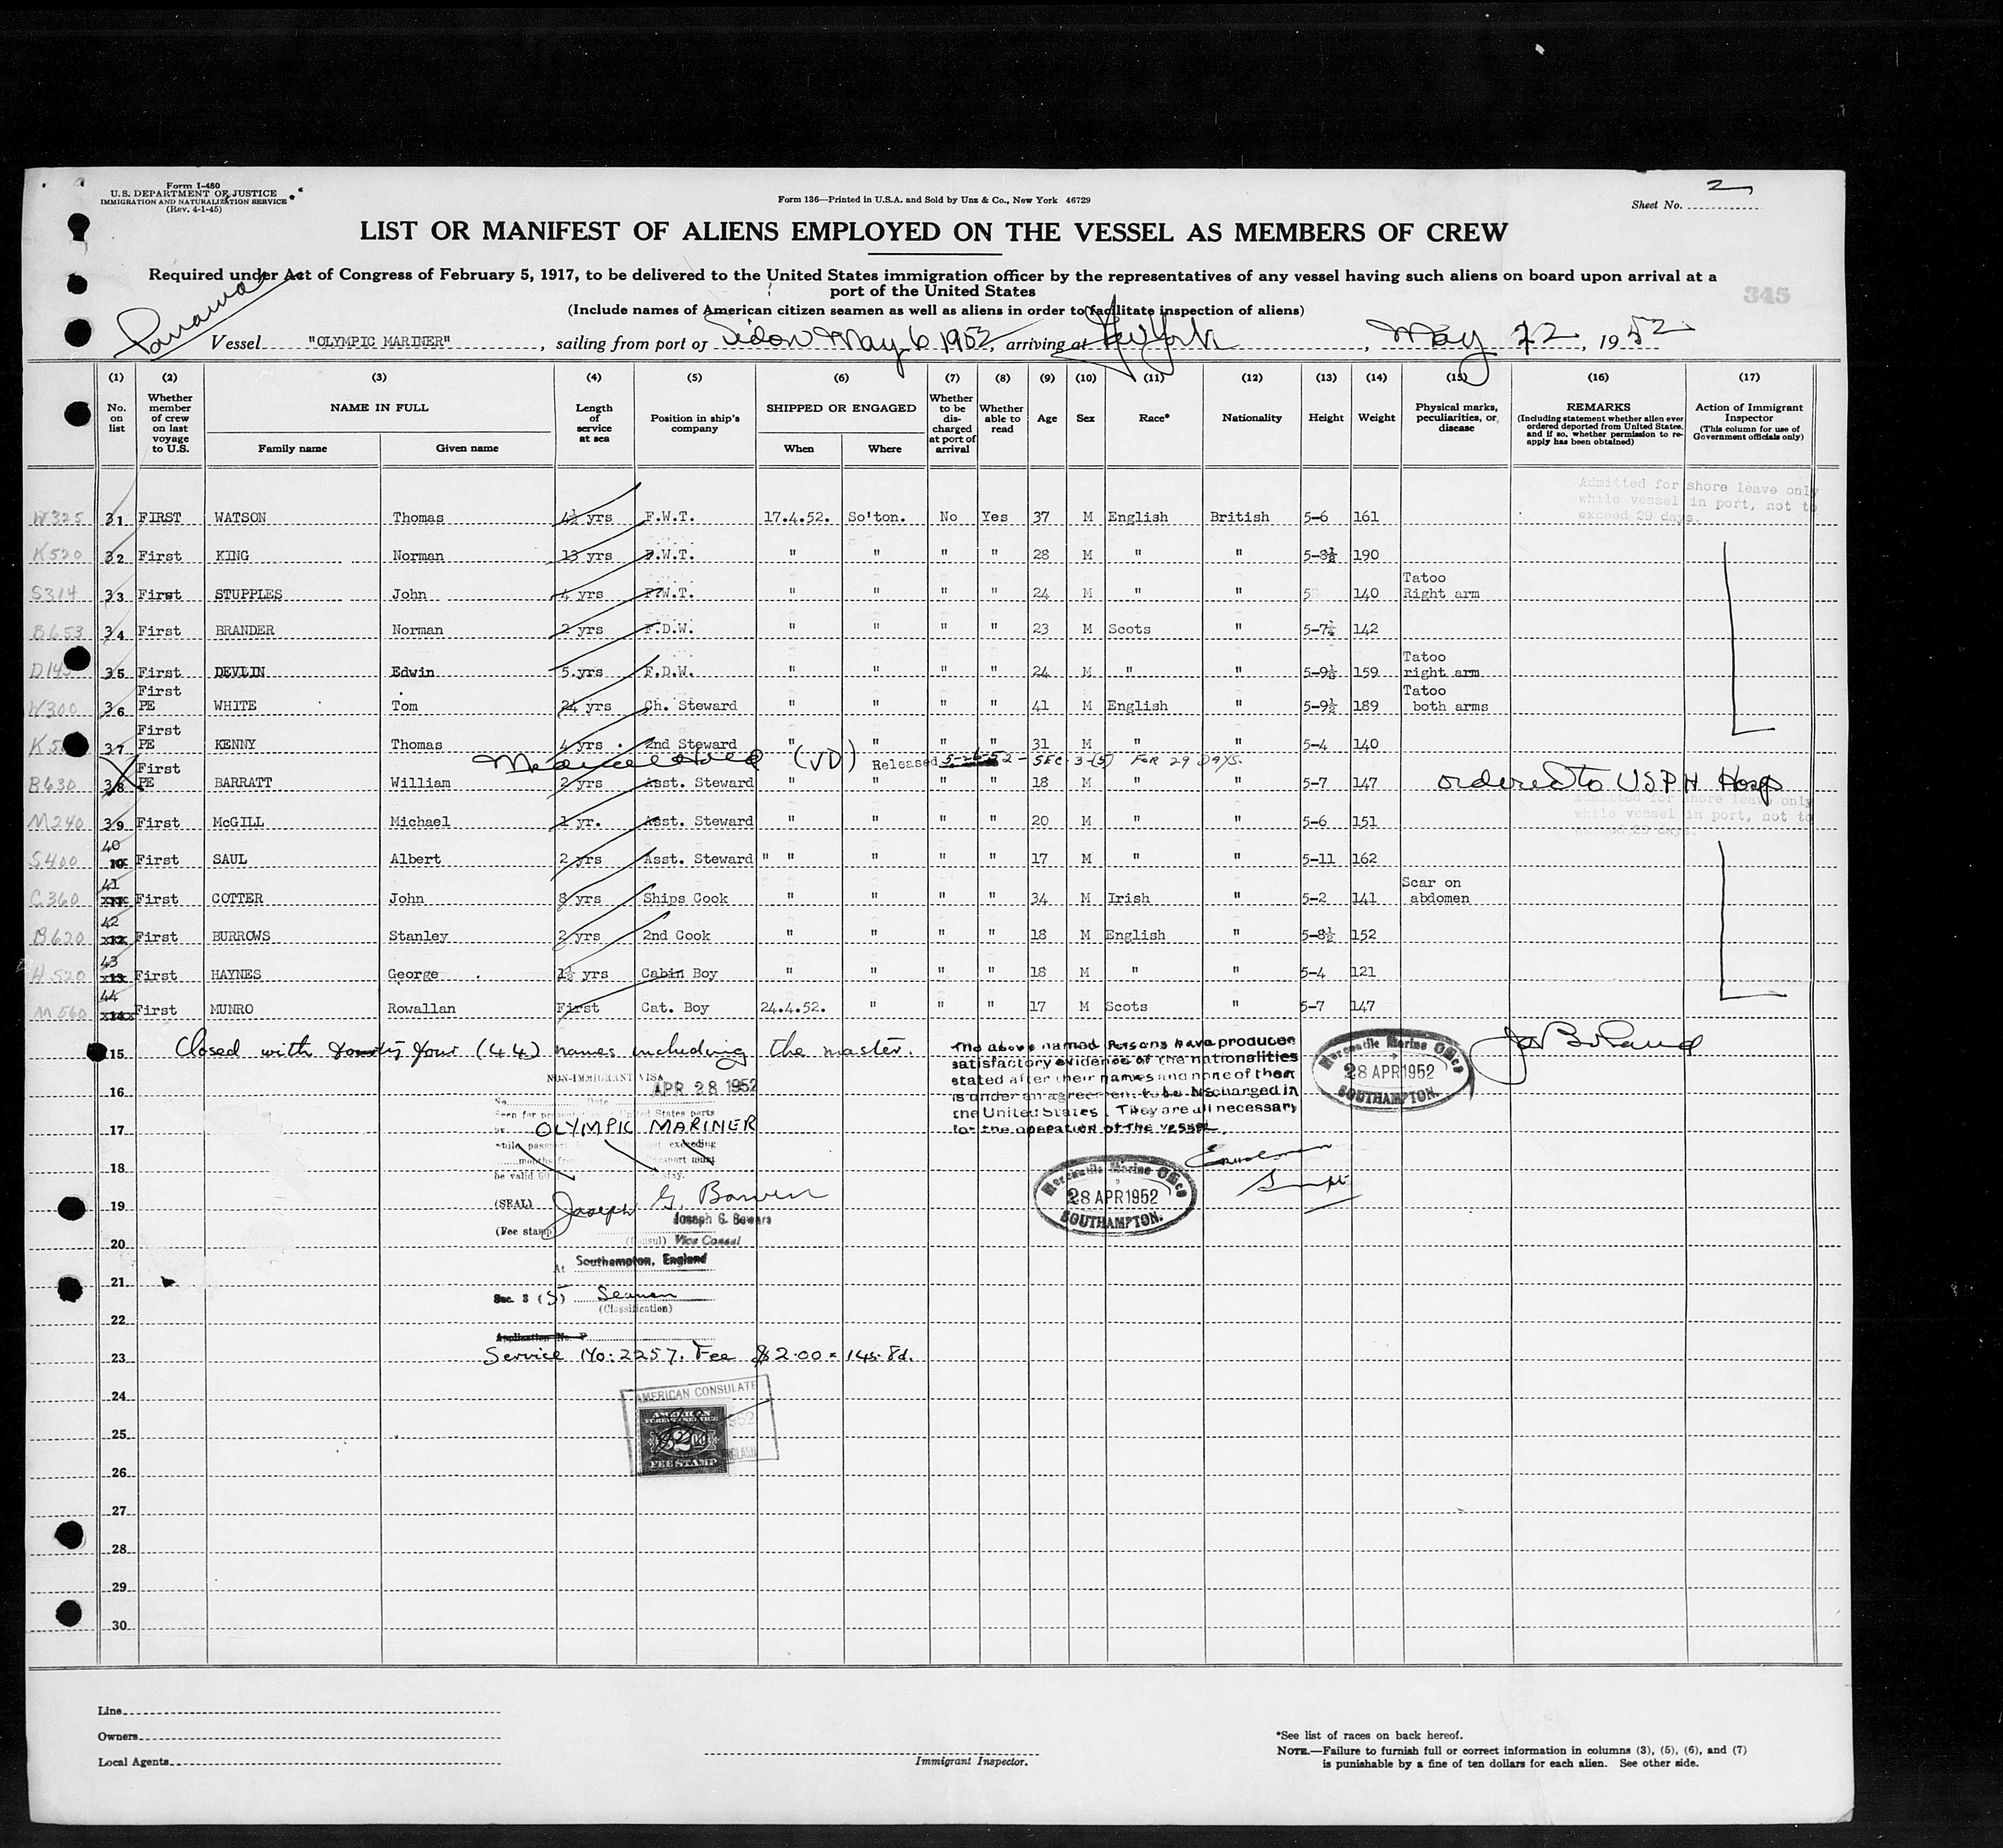 Form I-480
U.S. DEPARTMENT OF JUSTICE
IMMIGRATION AND NATURALIZATION SERVICE
(Rev. 4-1-45)
Form 136—Printed in U.S.A. and Sold by Unz & Co., New York 46729
2
Sheet No.
LIST OR MANIFEST OF ALIENS EMPLOYED ON THE VESSEL AS MEMBERS OF CREW
Required under Act of Congress of February 5, 1917, to be delivered to the United States immigration officer by the representatives of any vessel having such aliens on board upon arrival at a
port of the United States
345
(Include names of American citizen seamen as well as aliens in order to facilitate inspection of aliens)
Panama
Vessel "OLYMPIC MARINER", sailing from port of Sidon May 6 1952, arriving at New York, May 22, 1952
(1) (2) (3) (4) (5) (6) (7) (8) (9) (10) (11) (12) (13) (14) (15) (16) (17)
No. on list
Whether member of crew on last voyage to U.S.
NAME IN FULL
Family name Given name
Length of service at sea
Position in ship's company
SHIPPED OR ENGAGED
When Where
Whether to be discharged at port of arrival
Whether able to read
Age Sex Race* Nationality Height Weight
Physical marks, peculiarities, or disease
REMARKS
(Including statement whether alien ever ordered deported from United States, and if so, whether permission to reapply has been obtained)
Action of Immigrant Inspector
(This column for use of Government officials only)
Admitted for shore leave only
while vessel in port, not to
exceed 29 days.
W325 31 FIRST WATSON Thomas 4½ yrs F.W.T. 17.4.52. So'ton. No Yes 37 M English British 5-6 161
K520 32 First KING Norman 13 yrs F.W.T. " " " " 28 M " " 5-8½ 190
S314 33 First STUPPLES John 4 yrs F.W.T. " " " " 24 M " " 5 140 Tatoo Right arm
B653 34 First BRANDER Norman 2 yrs F.D.W. " " " " 23 M Scots " 5-7½ 142
D145 35 First DEVLIN Edwin 5 yrs F.D.W. " " " " 24 M " " 5-9½ 159 Tatoo right arm
W300 36 First PE WHITE Tom 24 yrs Ch. Steward " " " " 41 M English " 5-9½ 189 Tatoo both arms
K5 37 First PE KENNY Thomas 4 yrs 2nd Steward " " " " 31 M " " 5-4 140
Medical Hold (VD) Released 5-26-52 - SEC. 3-(5) FOR 29 DAYS.
B630 38 First PE BARRATT William 2 yrs Asst. Steward " " " " 18 M " " 5-7 147 ordered to USPH Hosp
Admitted for shore leave only
while vessel in port, not to
exceed 29 days.
M240 39 First McGILL Michael 1 yr. Asst. Steward " " " " 20 M " " 5-6 151
S400 40 First SAUL Albert 2 yrs Asst. Steward " " " " " 17 M " " 5-11 162
C360 41 First COTTER John 8 yrs Ships Cook " " " " 34 M Irish " 5-2 141 Scar on abdomen
B620 42 First BURROWS Stanley 2 yrs 2nd Cook " " " " 18 M English " 5-8½ 152
H520 43 First HAYNES George 1½ yrs Cabin Boy " " " " 18 M " " 5-4 121
M560 44 First MUNRO Rowallan First Cat. Boy 24.4.52. " " " 17 M Scots " 5-7 147
15 Closed with fourty four (44) names including the master.
The above named Persons have produced
satisfactory evidence of the nationalities
stated after their names and none of them
is under an agreement to be discharged in
the United States. They are all necessary
for the operation of the vessel.
Mercantile Marine Office
28 APR 1952
SOUTHAMPTON.
NON-IMMIGRANT VISA
APR 28 1952
No. Date
16
17 OLYMPIC MARINER
18
Supt.
Mercantile Marine Office
28 APR 1952
SOUTHAMPTON.
19
(SEAL) Joseph G. Bowers
Joseph G. Bowers
(Fee stamp)
(Consul) Vice Consul
20
At Southampton, England
21
Sec. 3 (5) Seamen
(Classification)
22
Application No.
23 Service No: 2257. Fee $2.00 = 14s. 8d.
24
AMERICAN CONSULATE
AMERICAN
FOREIGN SERVICE
$2.00
FEE STAMP
1952
ENGLAND
25
26
27
28
29
30
Line
Owners
Local Agents
Immigrant Inspector.
*See list of races on back hereof.
NOTE.—Failure to furnish full or correct information in columns (3), (5), (6), and (7)
is punishable by a fine of ten dollars for each alien. See other side.